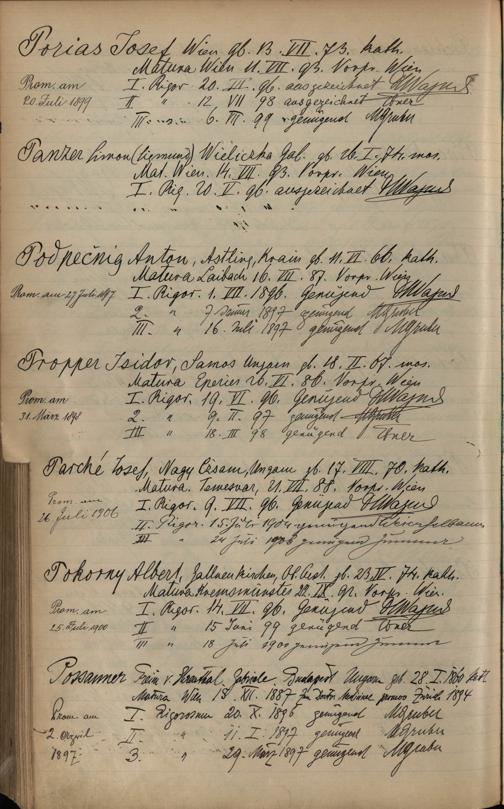 Porias Josef Wien gb. 13. VII. 73. kath.
Matura Wien 11. VII. 93. Vorpr. Wien
Prom. am
20. Juli 1899
I. Rigor. 20. II. 96. ausgezeichnet
II " 12. VII 98 ausgezeichnet
III. " 6. III. 99 genügend MGruber
Panzer Simon (Sigmund) Wieliczka Gal. gb. 26. I. 74. mos.
Mat. Wien. 14. VII. 93. Vorpr. Wien
I. Rig. 20. II. 96. ausgezeichnet
Podpečnig Anton, Assling, Krain gb. 11. VI. 66. kath.
Matura Laibach 16. VII. 87. Vorpr. Wien
Prom. am 27 Juli 1897
I. Rigor. 1. VII. 1896. Genügend
2. " 1897 genügend MGruber
III. " 16. Juli 1897 genügend MGruber
Propper Isidor, Samos Ungarn gb. 18. II. 67. mos.
Matura Eperies 26. VI. 86. Vorpr. Wien
Prom. am
31. März 1898
I. Rigor. 19. VI. 96. Genügend
2. " 9. II. 97 genügend
III " 18. III 98 genügend
Parché Josef, Nagy Ungarn gb. 17. VIII. 70. kath.
Matura. Temesvar, 21. VI. 88. Vorpr. Wien
Prom. am
26 Juli 1906
I. Rigor. 9. VII. 96. Genügend
II. Rigor. 15. 1904 genügend
III " 24 Juli 1906 genügend
Pokorny Albert, Gallneukirchen, Ob. Oest. gb. 23. IV. 74. kath.
Matura Kremsmünster 22. IX. 92. Vorpr. Wien.
Prom. am
25. Juli 1900
I. Rigor. 14. VII. 96. Genügend
II " 15 Juni 99 genügend
III " 18 Juli 1900 genügend
Possanner Freiin v. Ehrenthal, Gabriele. Budapest Ungarn gb. 28. I. 1860 kath.
Matura Wien 18. XII. 1887 Zürich 1894
Prom. am
2. April
1897
I. Rigorosum 20. X. 1896 genügend MGruber
II. " 11. I. 1897 genügend MGruber
3. " 29. März 1897 genügend MGruber